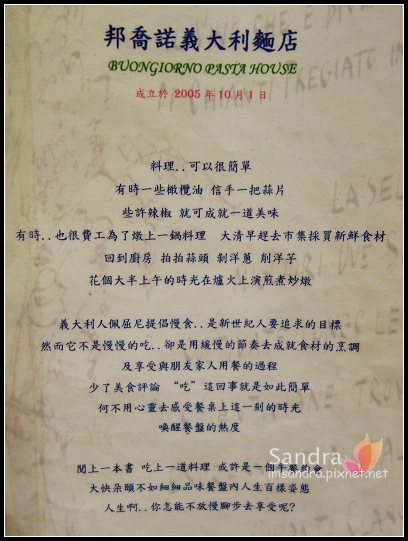 邦喬諾義大利麵店
BUONGIORNO PASTA HOUSE
成立於 2005年10月1日
料理..可以很簡單
有時一些橄欖油 信手一把蒜片
些許辣椒 就可成就一道美味
有時..也很費工為了燉上一鍋料理 大清早趕去市集採買新鮮食材
回到廚房 拍拍蒜頭 剁洋蔥 削洋芋
花個大半上午的時光在爐火上演煎煮炒燉
義大利人佩屈尼提倡慢食..是新世紀人要追求的目標
然而它不是慢慢的吃..卻是用緩慢的節奏去成就食材的烹調
及享受與朋友家人用餐的過程
少了美食評論 “吃”這回事就是如此簡單
何不用心靈去感受餐桌上這一刻的時光
喚醒餐盤的熱度
闔上一本書 吃上一道料理 或許是一個午餐約會
大快朵頤不如細細品味餐盤內人生百樣姿態
人生啊..你怎能不放慢腳步去享受呢?
Sandra
imsandra.pixnet.net